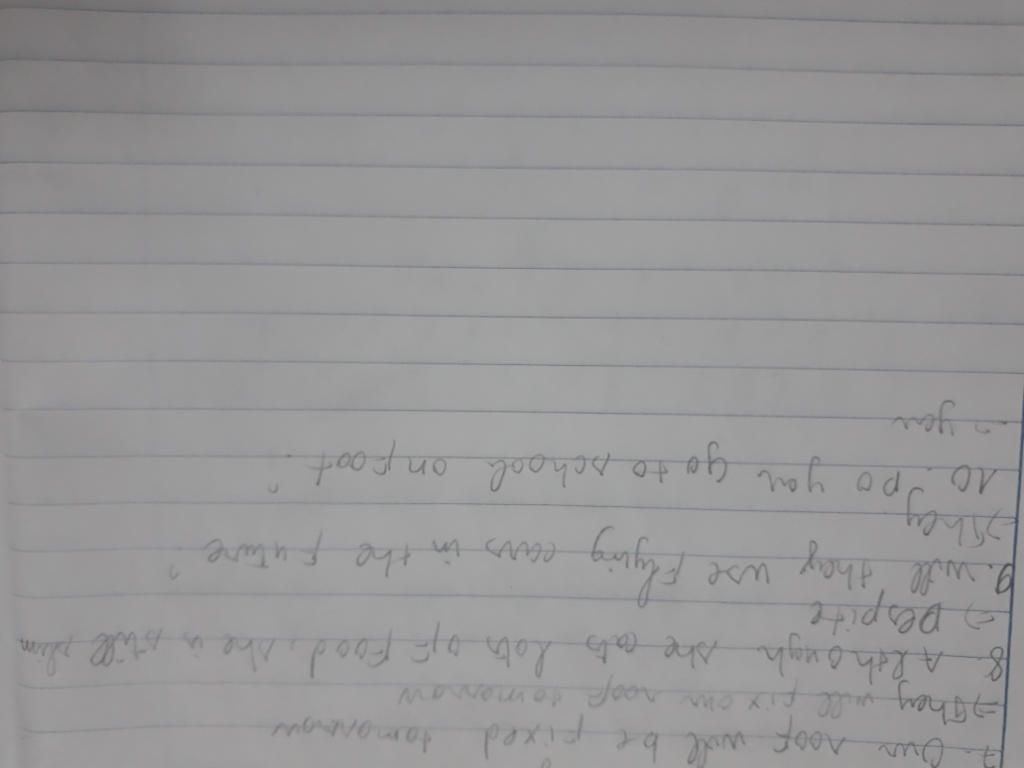 7. Our roof will be fixed tomorrow
→ They will fix our roof tomorrow
8. Although she eats lots of food, she is still slim
→ Despite
9. Will they use flying cars in the future?
→ They
10. Do you go to school on foot?
→ you